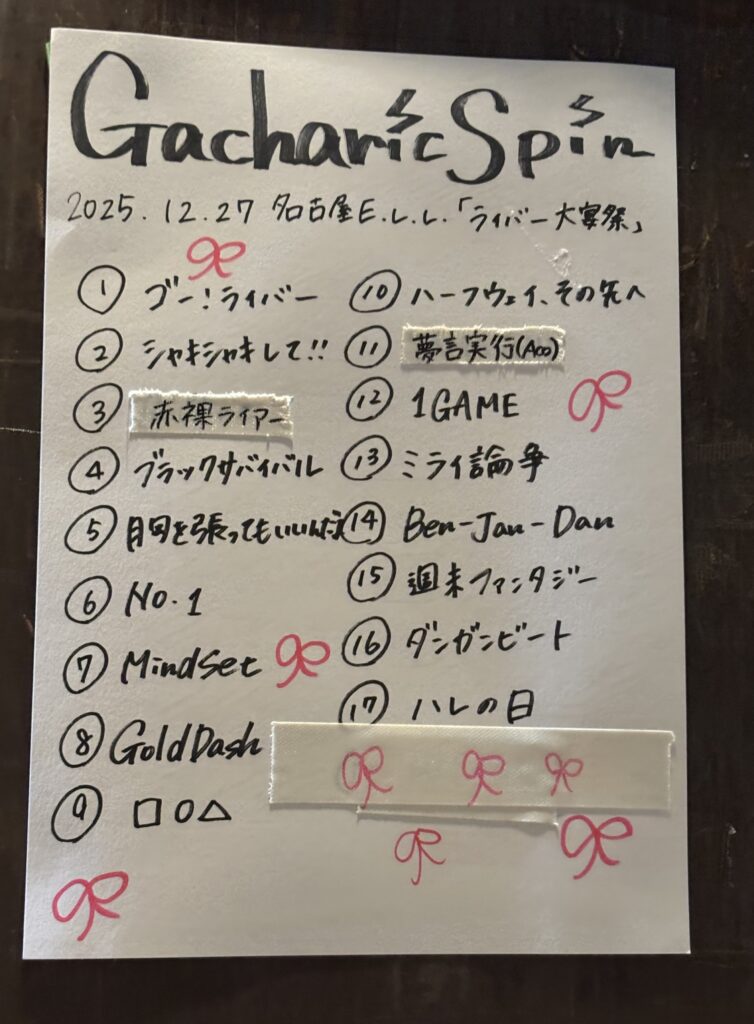 Gacharic Spin
2025.12.27 名古屋E.L.L.「ライバー大宴祭」
① ゴー!ライバー
② シャキシャキして!!
③ 赤裸ライアー
④ ブラックサバイバル
⑤ 胸を張ってもいいんだ
⑥ No.1
⑦ MindSet
⑧ GoldDash
⑨ □○△
⑩ ハーフウェイ、その先へ
⑪ 夢言実行(Aco)
⑫ 1GAME
⑬ ミライ論争
⑭ Ben-Jan-Dan
⑮ 週末ファンタジー
⑯ ダンガンビート
⑰ ハレの日